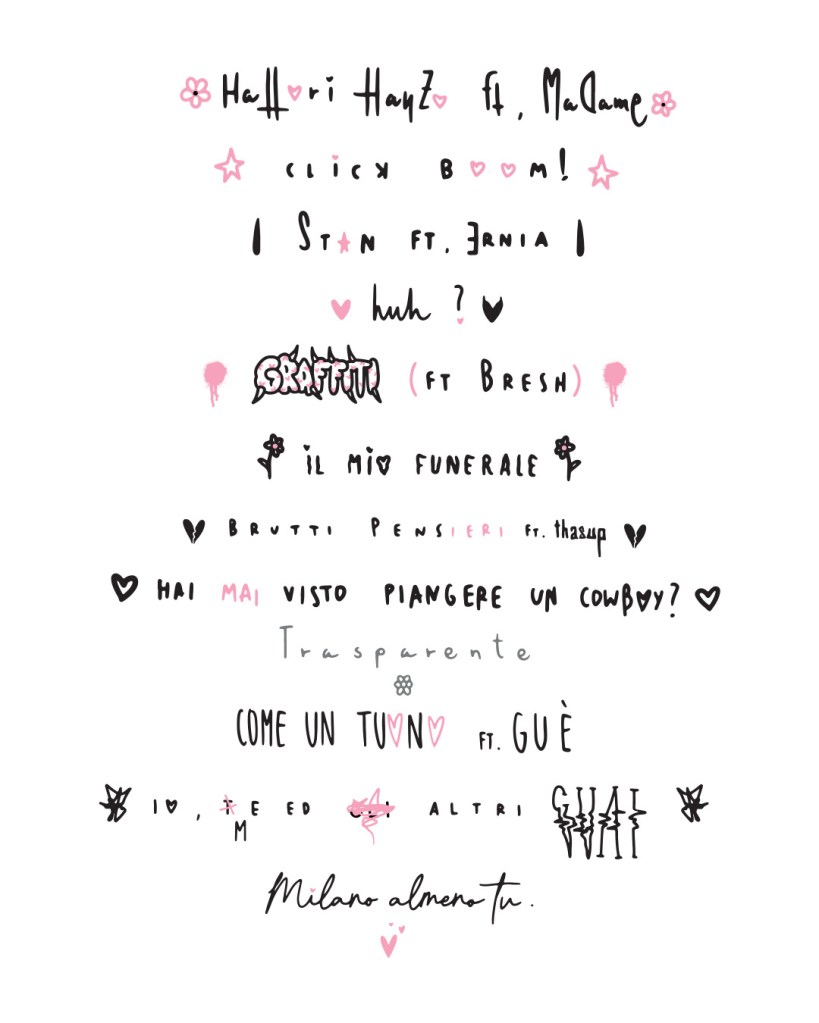 Hattori Hanzo ft, Madame
CLICK BOOM!
STAN FT. ERNIA
huh?
GRAFFITI (FT BRESH)
IL MIO FUNERALE
BRUTTI PENSIERI FT. thasup
HAI MAI VISTO PIANGERE UN COWBOY?
Trasparente
COME UN TUONO FT. GUÈ
IO, ME ED ALTRI GUAI
Milano almeno tu.